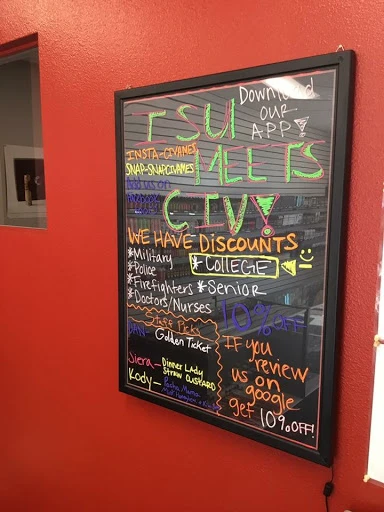 Download
OUR
APP!
TSUI
INSTA-CIVAMES
MEETS
SNAP-SNAPCIVAMES
CIV!
WE HAVE DISCOUNTS
*Military
*COLLEGE
*Police
*Firefighters *Senior
*Doctors/Nurses
10% OFF
Staff Picks
DAN- Golden Ticket
IF you
review
us on
google
get 10% OFF!
Siera- Dinner Lady
Straw CUSTARD
Kody-